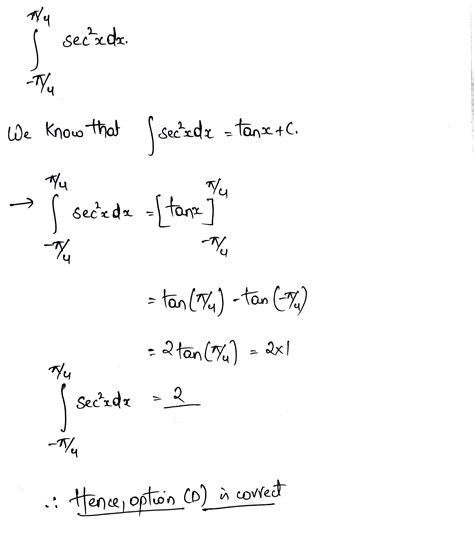 ∫_{-π/4}^{π/4} sec²x dx.
We know that ∫ sec²x dx = tanx + C.
→ ∫_{-π/4}^{π/4} sec²x dx = [tanx]_{-π/4}^{π/4}
= tan(π/4) - tan(-π/4)
= 2 tan(π/4) = 2×1
∫_{-π/4}^{π/4} sec²x dx = 2
∴ Hence, option (D) is correct